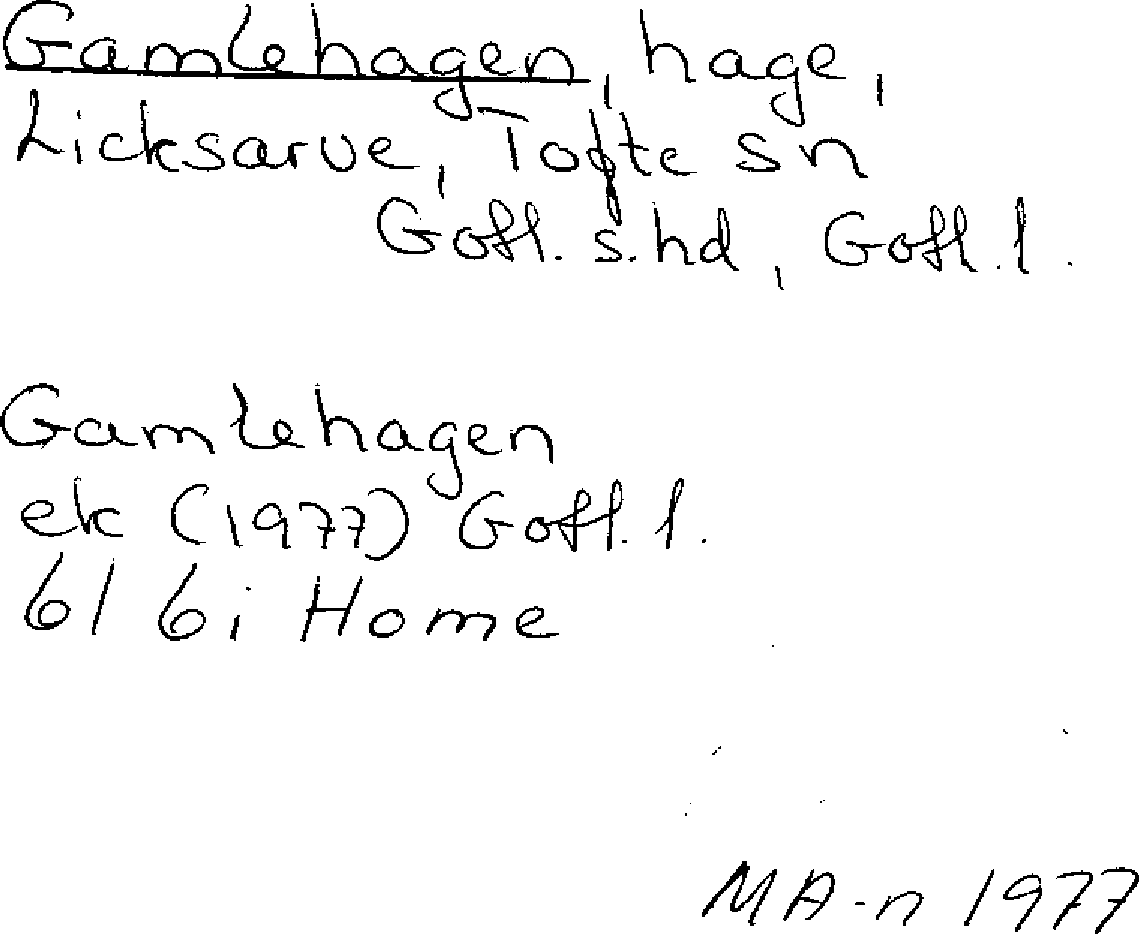 Gamlehagen, hage,
Licksarve, Tofte sn
Gotl. s. hd, Gotl. l.
Gamlehagen
ek (1977) Gotl. l.
6I 6i Home
MA-n 1977